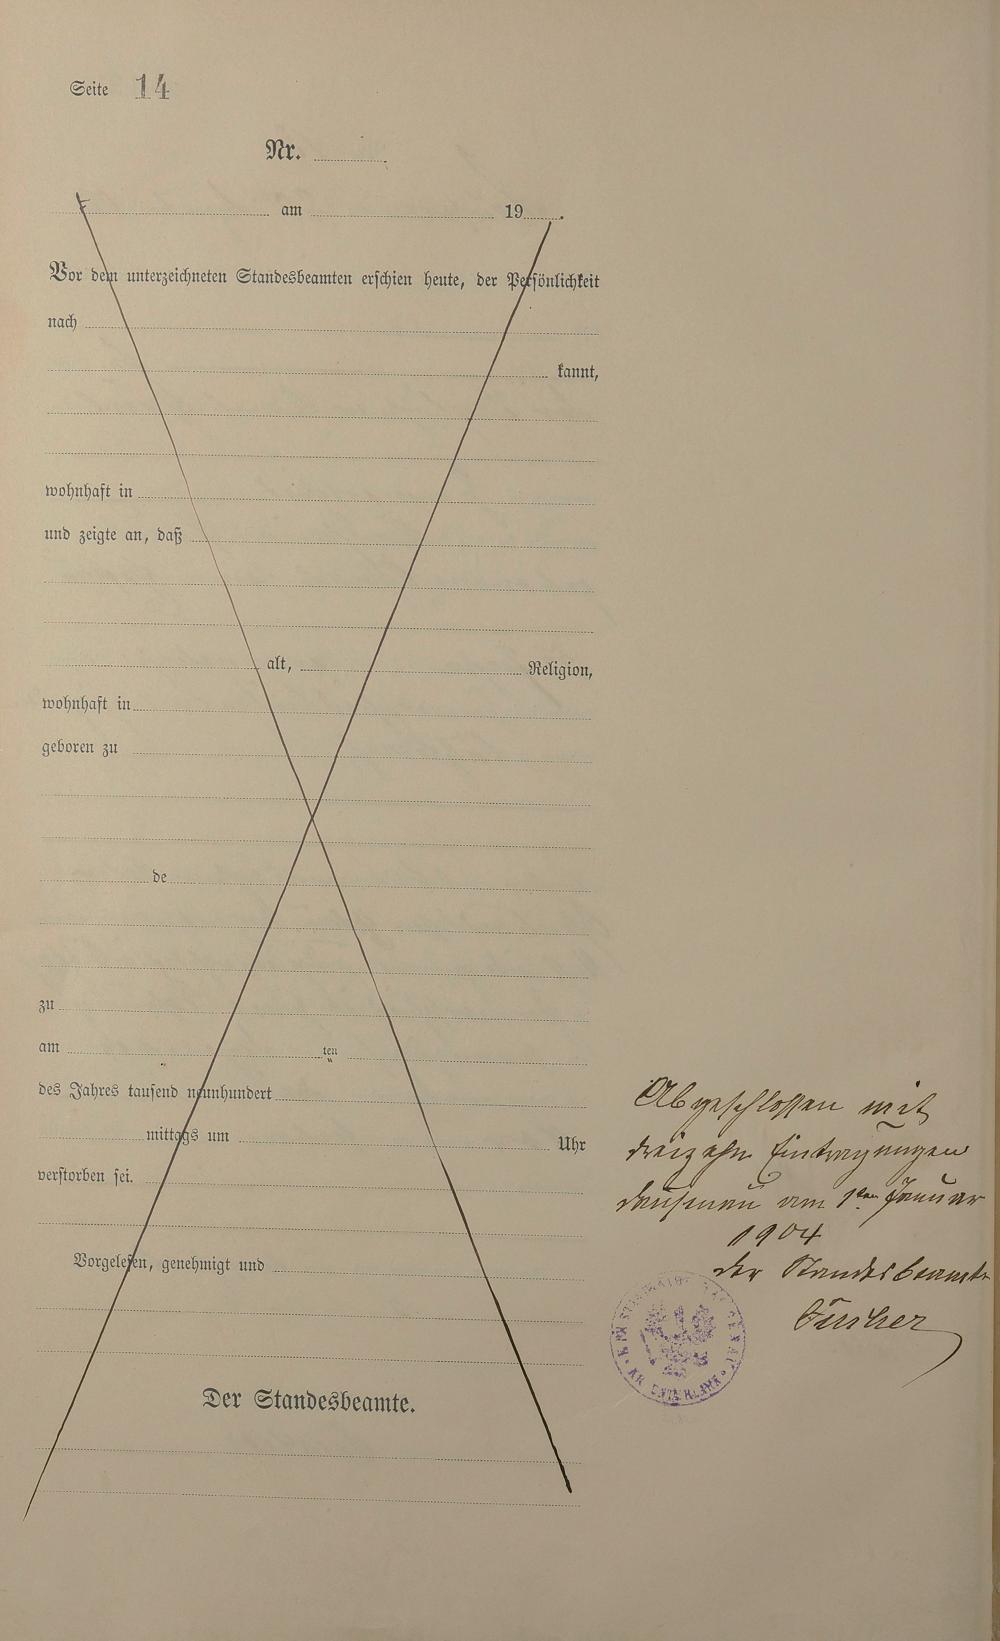 Seite 14
Nr.
am 19
Vor dem unterzeichneten Standesbeamten erschien heute, der Persönlichkeit
nach
kannt,
wohnhaft in
und zeigte an, daß
alt, Religion,
wohnhaft in
geboren zu
de
zu
am ten
des Jahres tausend neunhundert
mittags um Uhr
verstorben sei.
Vorgelesen, genehmigt und
Der Standesbeamte.
Abgeschlossen mit
dreizehn Eintragungen
Dausenau am 1ten Januar
1904
der Standesbeamte